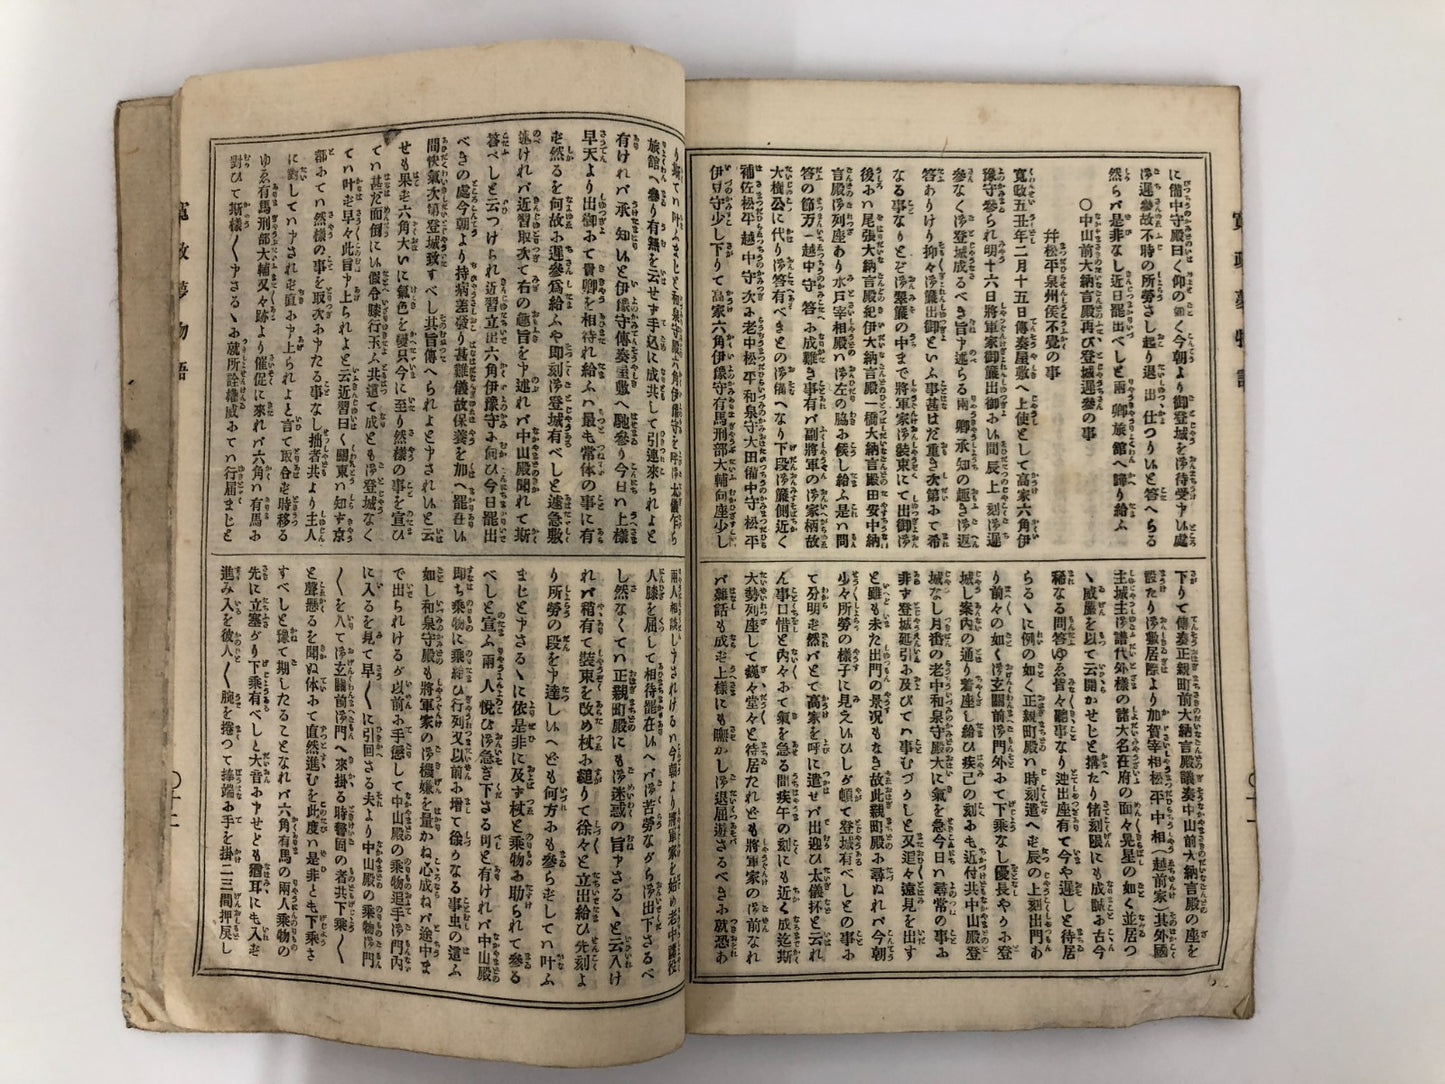 に備中守殿曰く仰の如く今朝より御登城を御待受申しい處
御遲參故不時の所勞さし起り退出仕つりいと答へらる
然らバ是非なし近日罷出べしと兩卿旅館へ歸り給ふ
〇中山前大納言殿再び登城遲參の事
并松平泉州侯不覺の事
寬政五丑年二月十五日傳奏屋敷へ上使として高家六角伊
豫守參られ明十六日將軍家御簾出御おい間辰上刻御遲
參なく御登城成るべき旨申述らる兩卿承知の趣き御返
答ありけり抑々御簾出御といふ事甚はだ重き次第おて希
なる事なりとぞ御翠簾の中まで將軍家御裝束にて出御御
後おハ尾張大納言殿紀伊大納言殿一橋大納言殿田安中納
言殿御列座あり水戸宰相殿ハ御左の脇お候し給ふ是ハ問
答の節万一越中守答お成難き事有バ副將軍の御家柄故
大權公に代り御答有べきとの御備へなり下段御簾側近く
補佐松平越中守次お老中松平和泉守大田備中守松平
伊豆守少し下りて高家六角伊豫守有馬刑部大輔向座少し
下りて傳奏正親町前大納言殿議奏中山前大納言殿の座を
設たり御敷居際より加賀宰相松平中相（越前家）其外國
主城主御譜代外樣の諸大名在府の面々晃星の如く並居つ
ヽ威嚴を以て云開かせじと搆たり偖刻限にも成ぬお古今
稀なる問答ゆゑ皆々聽事なり追出座有て今や遲しと待居
らるヽに例の如く正親町殿ハ時刻違へ老辰の上刻出門あ
り前々の如く御玄關前御門外おて下乘なし優長やうお登
城し案內の通り着座し給ひ疾己の刻お近付共中山殿登
城なし月番の老中和泉守殿大に氣を急今日ハ尋常の事お
非ず登城延引お及びてハ事むづうしと又追々遠見を出す
と雖も未た出門の景況もなき故此親町殿お尋ぬれバ今朝
少々所勞の樣子に見えいひしが頓て登城有べしとの事お
て分明老然バとて高家を呼に遣せバ出迎ひ太儀抔と云れ
ん事口惜と內々おて氣を急る間疾午の刻にも近く成迄斯
大勢列座して巍々堂々と待居たれども將軍家の御前なれ
バ雜話も成老上樣にも嘸かし御退屈遊さるべきお就恐あ
旅館へ參り有無を云せず手込に成共して引連來られよと
有けれバ承知いと伊豫守傳奏屋敷へ馳參り今日ハ上樣
早天より出御おて貴卿を相待れ給ふハ最も常体の事に有
老然るを何故お遲參爲給ふや即刻御登城有べしと遽急敷
述けれバ近習取次て右の趣旨を申述れバ中山殿聞れて斯
答べしと云つけられ近習立出六角伊豫守お向ひ今日罷出
べきの處今朝より持病差發り甚難儀故保養を加へ罷在い
間快氣次第登城致すべし其旨傳へられよと申されいと云
せも果老六角大いに氣色を變只今に至り然樣の事を宣ひ
てハ甚だ面倒にい假令膝行玉ふ共這て成とも御登城なく
てハ叶老早々此旨申上られよと云近習曰く關東ハ知ず京
都おてハ然樣の事を取次お申たる事なし拙者共より主人
に對してハ申され老直お申上られよと言て取合老時移る
ゆゑ有馬刑部大輔又々跡より催促に來れバ六角ハ有馬お
對ひて斯樣〳〵申さるヽお就所詮權威おてハ行屆まじと
兩人相談し申されけるハ今朝より將軍家を始め老中諸役
人膝を屈して相待罷在いへバ御苦勞ながら御出下さるべ
し然なくてハ正親町殿にも御迷惑の旨申さるヽと云入け
れバ稍有て裝束を改め杖お縋りて徐々と立出給ひ先刻よ
り所勞の段を申達しいへども何方お參ら老してハ叶ふ
まじと申さるヽに依是非に及ず杖と乘物お助られて參る
べしと宣ふ兩人悅ひ御急ぎ下さる可と有けれバ中山殿
即ち乘物に乘給ひ行列又以前お增て徐々なる事虫の這ふ
如し和泉守殿も將軍家の御機嫌を量かね心成ねバ途中ま
で出られけるが以前お手懲して中山殿の乘物追手御門內
に入るを見て早〳〵に引回さる夫より中山殿の乘物御門
〳〵を入て御玄關前御門へ來掛る時警固の者共下乘〳〵
と聲懸るを聞ぬ体おて直然進むを此度ハ是非とも下乘さ
すべしと豫て期したることなれバ六角有馬の兩人乘物の
先に立塞がり下乘有べしと大音お申せども猶耳にも入老
進み入を彼人〳〵腕を捲つて捧端お手を掛二三間押戾し
寬政夢物語
〇十二